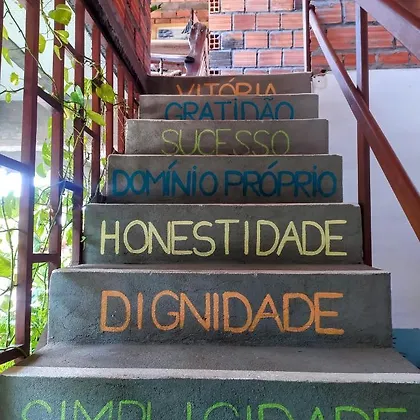 VITÓRIA
GRATIDÃO
SUCESSO
DOMÍNIO PRÓPRIO
HONESTIDADE
DIGNIDADE
SIMPLICIDADE